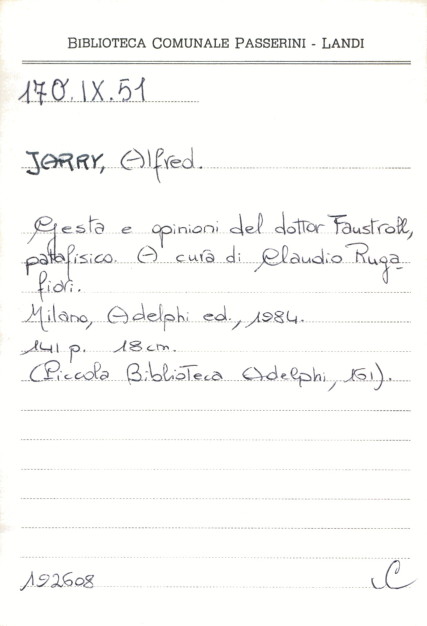 BIBLIOTECA COMUNALE PASSERINI - LANDI
170.IX.51
JARRY, Alfred.
Gesta e opinioni del dottor Faustroll,
patafisico. A cura di Claudio Ruga-
fiori.
Milano, Adelphi ed., 1984.
141 p. 18 cm.
(Piccola Biblioteca Adelphi, 161).
192608
C